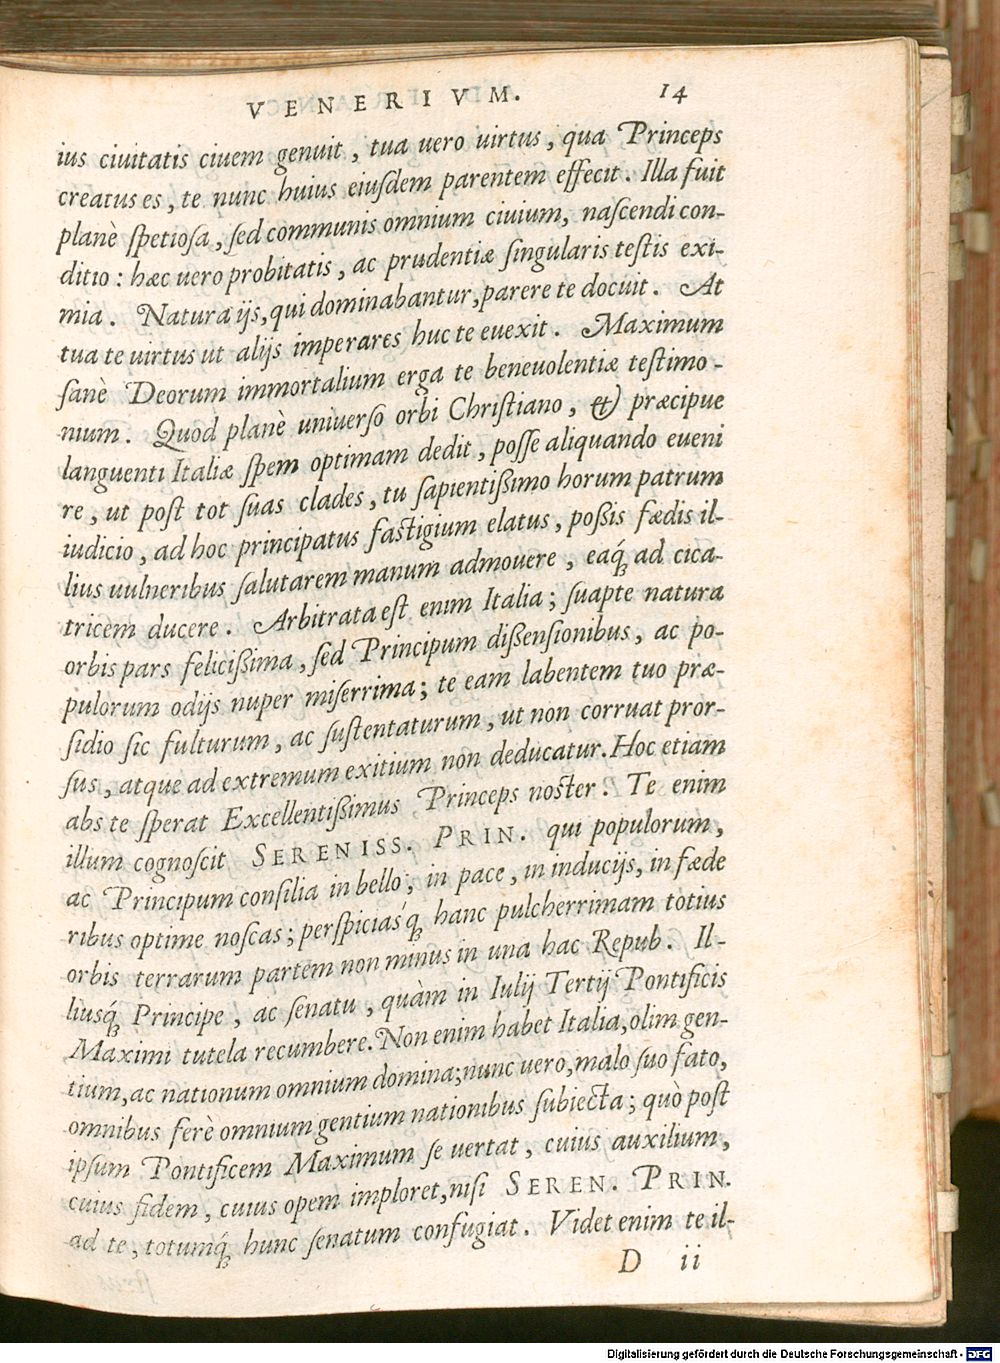 VENERIVM. 14
ius ciuitatis ciuem genuit, tua uero uirtus, qua Princeps
creatus es, te nunc huius eiuſdem parentem effecit. Illa fuit
planè ſpetioſa, ſed communis omnium ciuium, naſcendi con-
ditio: hæc uero probitatis, ac prudentiæ ſingularis teſtis exi-
mia. Natura ijs, qui dominabantur, parere te docuit. At
tua te uirtus ut alijs imperares huc te euexit. Maximum
ſanè Deorum immortalium erga te beneuolentiæ teſtimo-
nium. Quod planè uniuerſo orbi Chriſtiano, & præcipue
languenti Italiæ ſpem optimam dedit, poſſe aliquando eueni
re, ut poſt tot ſuas clades, tu ſapientißimo horum patrum
iudicio, ad hoc principatus faſtigium elatus, poßis fœdis il-
lius uulneribus ſalutarem manum admouere, eaq́ꝫ ad cica-
tricem ducere. Arbitrata eſt enim Italia; ſuapte natura
orbis pars felicißima, ſed Principum dißenſionibus, ac po-
pulorum odijs nuper miſerrima; te eam labentem tuo præ-
ſidio ſic fulturum, ac ſuſtentaturum, ut non corruat pror-
ſus, atque ad extremum exitium non deducatur. Hoc etiam
abs te ſperat Excellentißimus Princeps noſter. Te enim
illum cognoſcit SERENISS. PRIN. qui populorum,
ac Principum conſilia in bello, in pace, in inducijs, in fœde
ribus optime noſcas; perſpiciasq́ꝫ hanc pulcherrimam totius
orbis terrarum partem non minus in una hac Repub. Il-
liusq́ꝫ Principe, ac ſenatu, quàm in Iulij Tertij Pontificis
Maximi tutela recumbere. Non enim habet Italia, olim gen-
tium, ac nationum omnium domina; nunc uero, malo ſuo fato,
omnibus ferè omnium gentium nationibus ſubiecta; quò poſt
ipſum Pontificem Maximum ſe uertat, cuius auxilium,
cuius fidem, cuius opem imploret, niſi SEREN. PRIN.
ad te, totumq́ꝫ hunc ſenatum confugiat. Videt enim te il-
D ii
Digitalisierung gefördert durch die Deutsche Forschungsgemeinschaft - DFG